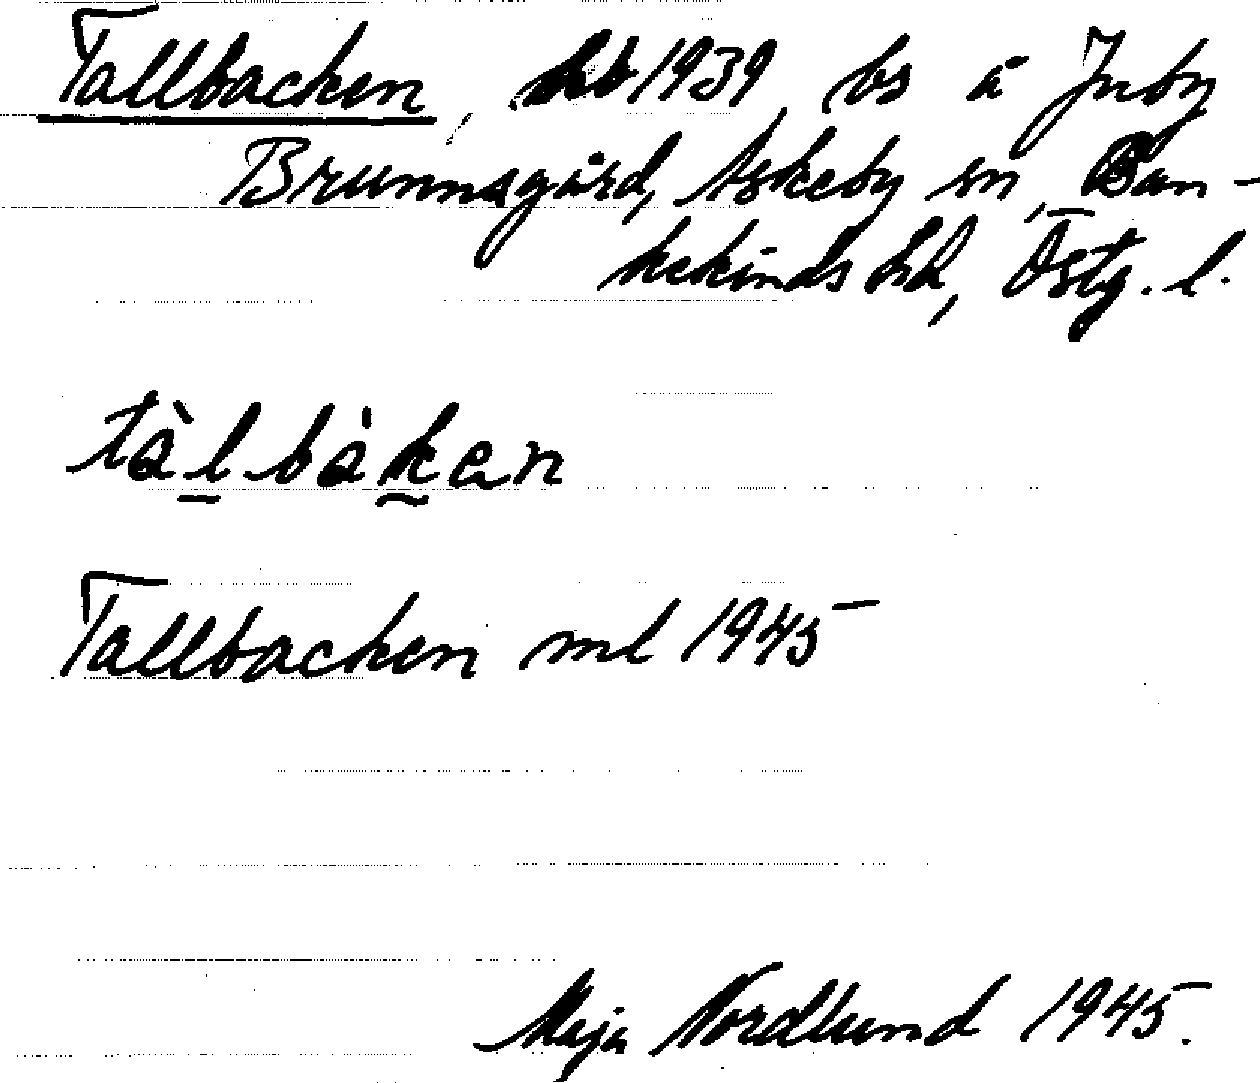 Tallbacken, 1939, bs å Juby
Brunnsgård, Askeby sn, Ban-
kekinds hd, Östg. l.
tàlbàkan
Tallbacken ml 1945
Maja Nordlund 1945.